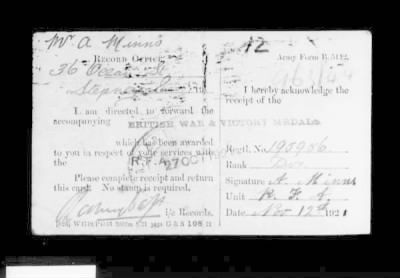 Mr A Minns
RECORD OFFICE,
36
Stepney
I am directed to forward the
accompanying
BRITISH WAR & VICTORY MEDALS
which has been awarded
to you in respect of your services with
the R.F.A.
Please complete receipt and return
this card. No stamp is required.
i/c Records.
12
Army Form B. 5112.
I hereby acknowledge the
receipt of the
Regtl. No. 195956
Rank
Signature A. Minns
Unit R. F. A.
Date Nov 12th 1921